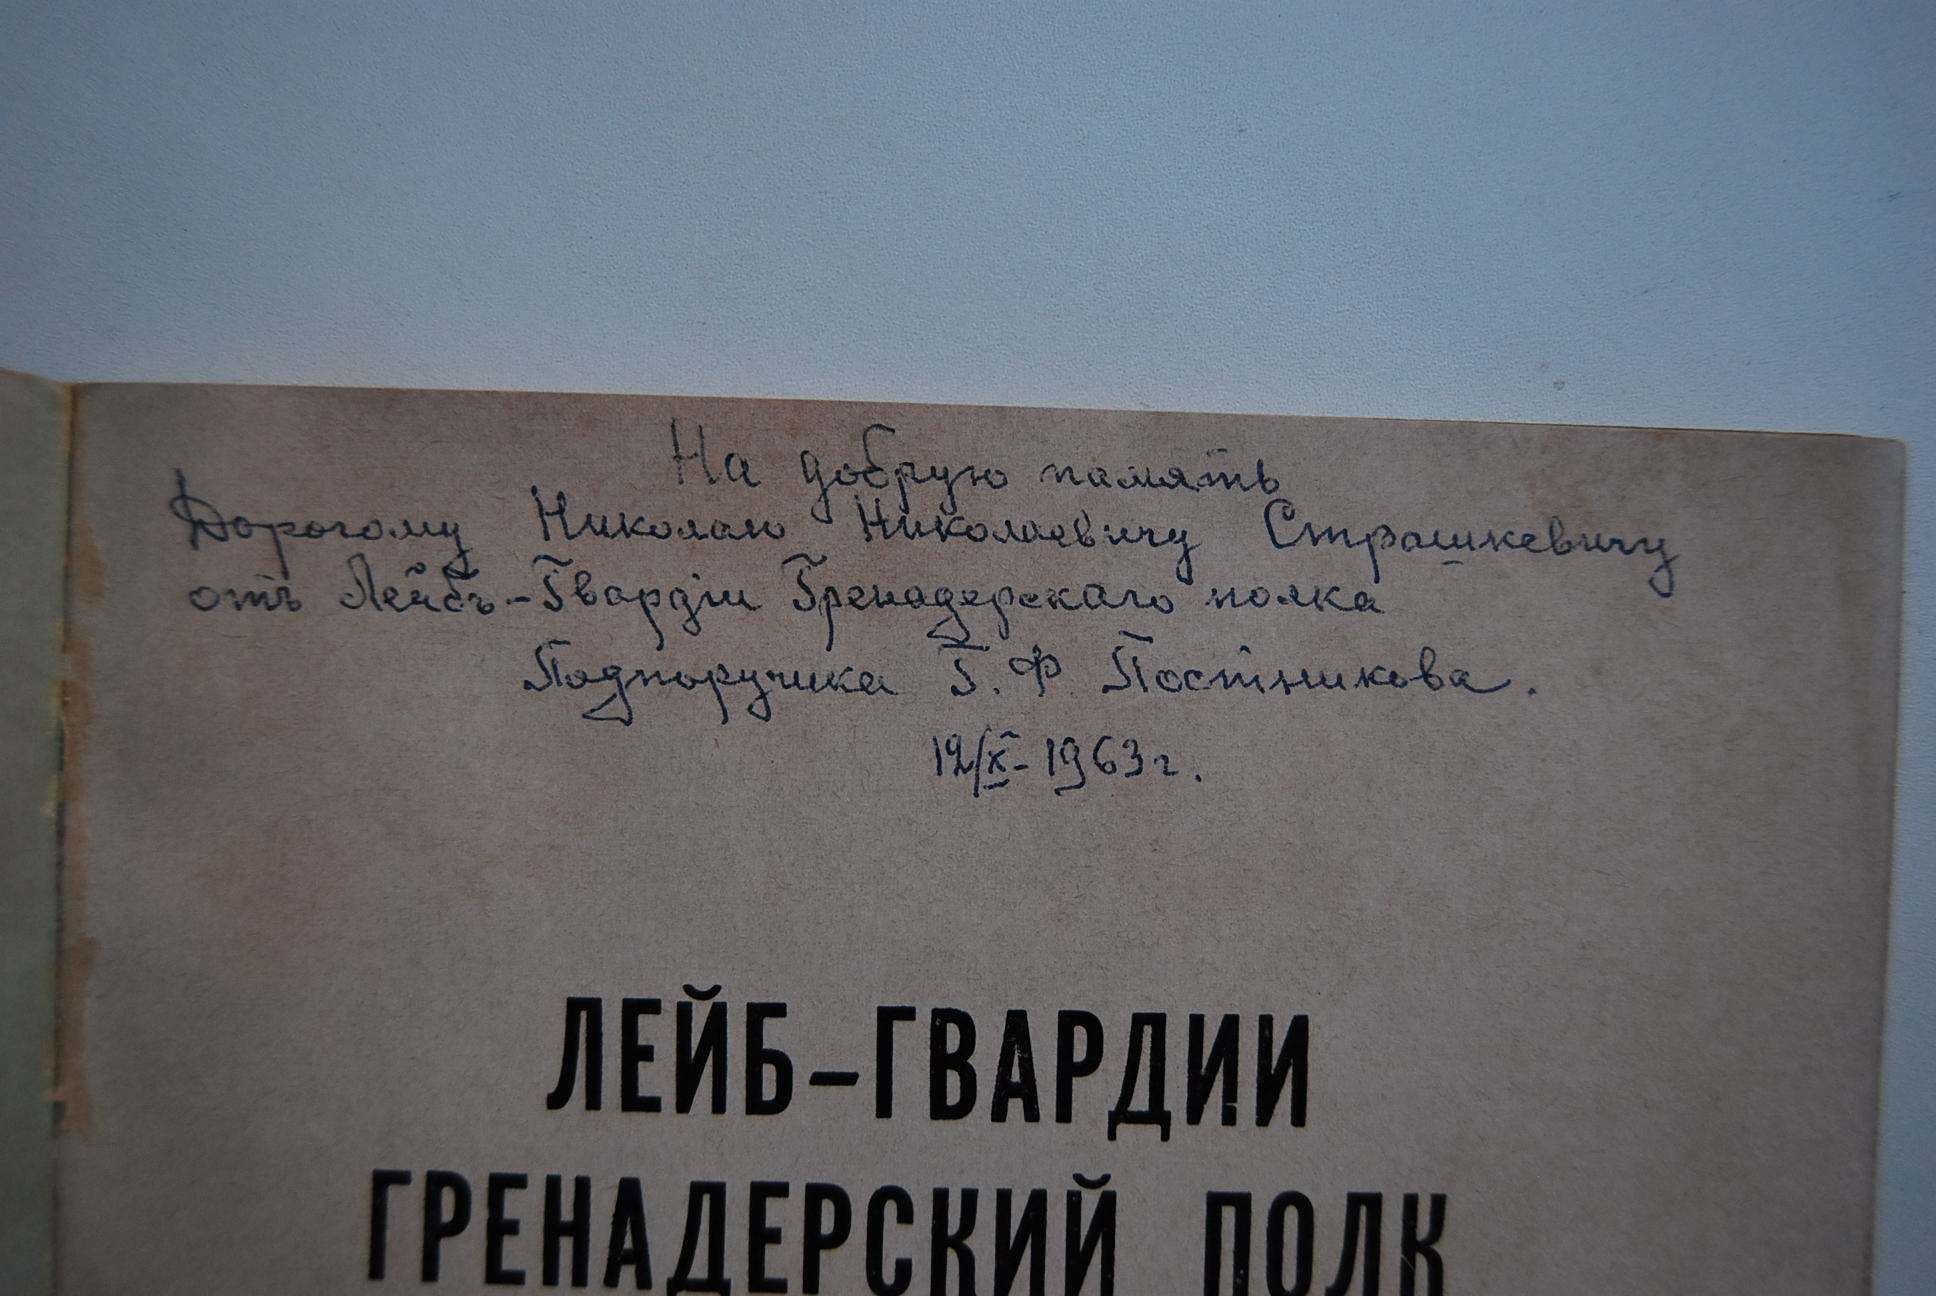 На добрую память
Дорогому Николаю Николаевичу Страшкевичу
отъ Лейбъ-Гвардіи Гренадерскаго полка
Подпоручика Г. Ф. Постникова.
12/X-1963г.
ЛЕЙБ-ГВАРДИИ
ГРЕНАДЕРСКИЙ ПОЛК